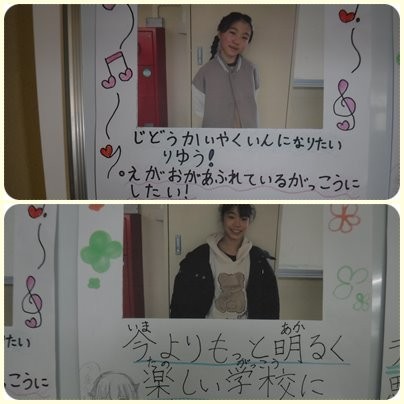 じどうかいやくいんになりたい
りゆう!
。えがおがあふれているがっこうに
したい!
いま あか
今よりもっと明るく
たの がっこう
楽しい学校に
たい
っこうに